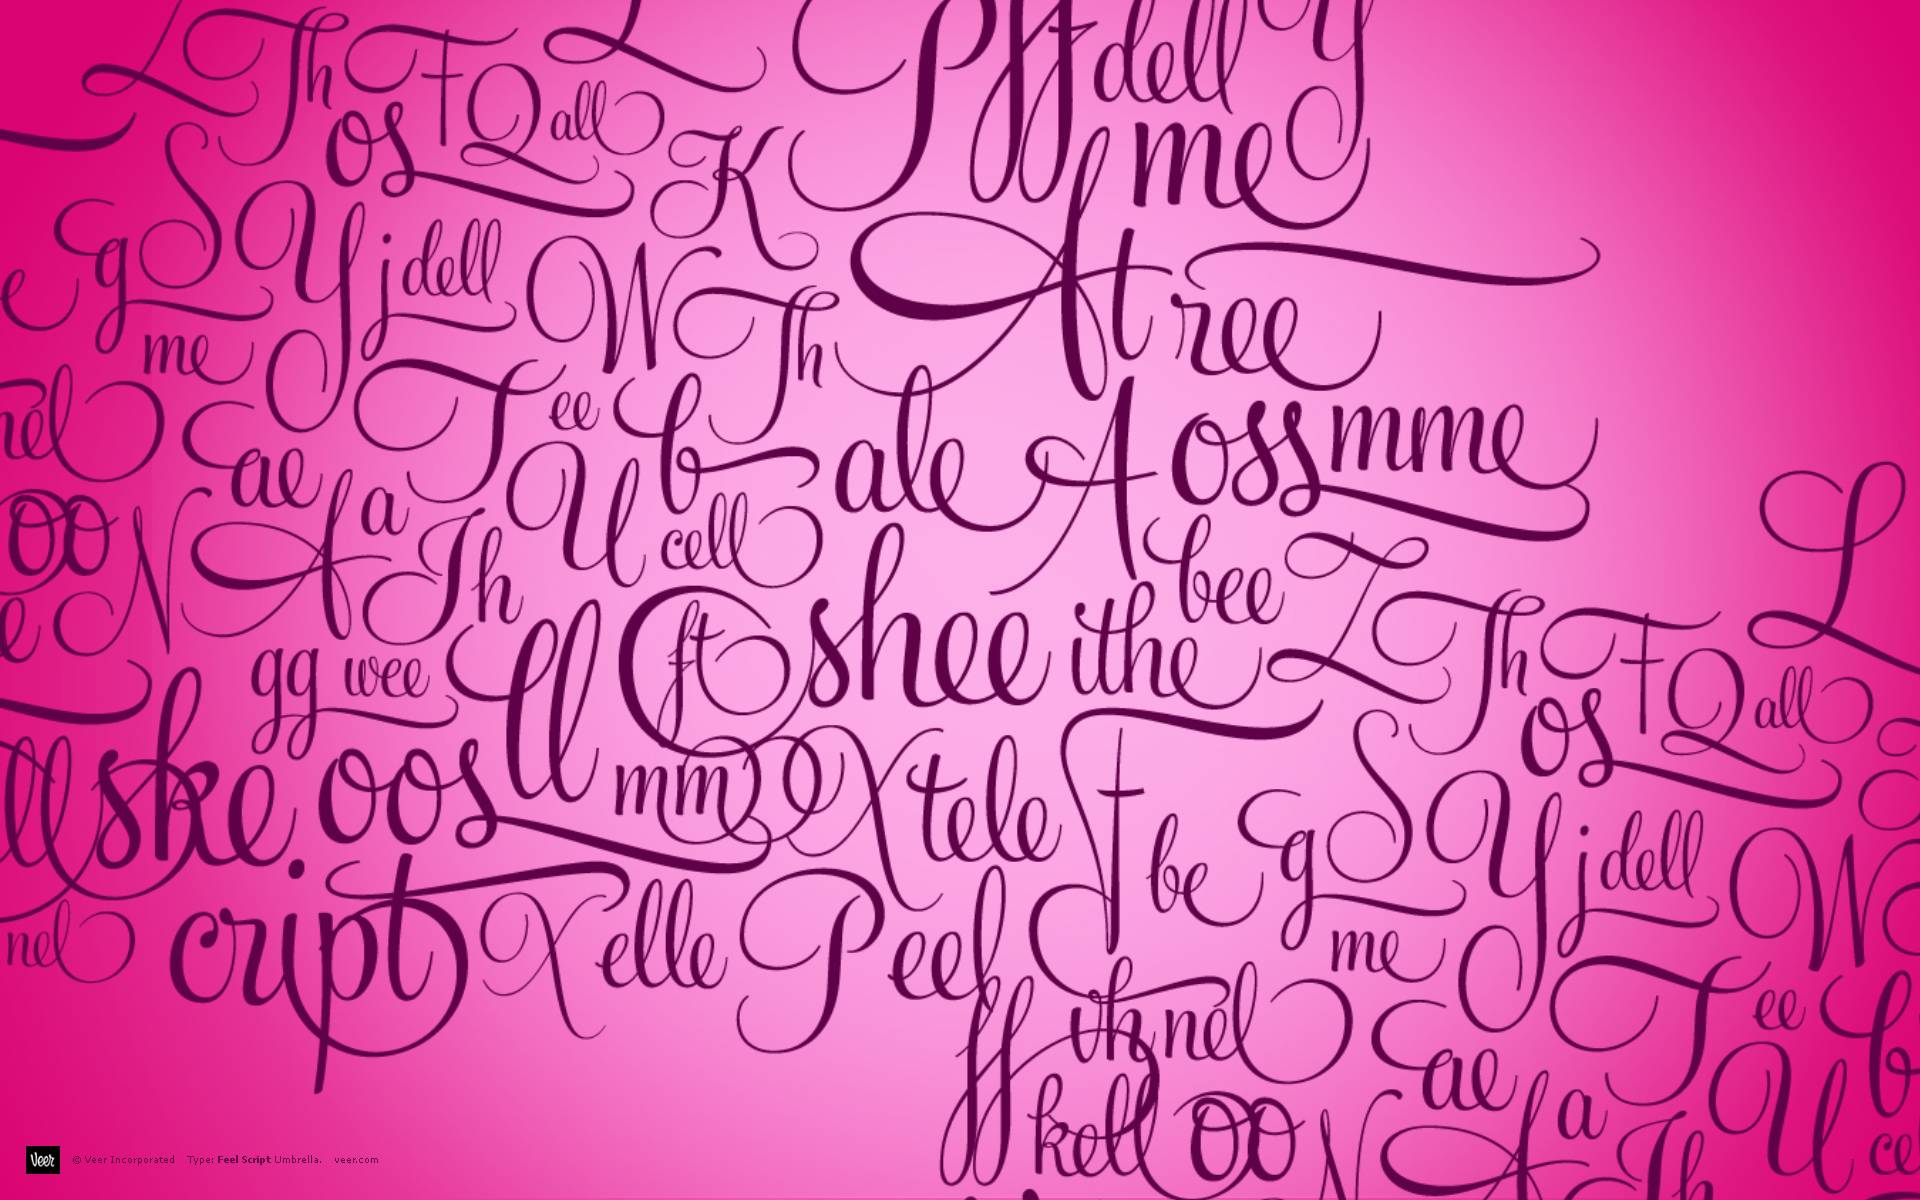 L Th F L P ff dell Y
os Q all K me
e g S Y j dell W Th At ree
me
nel T ee b ale A oss mme L
ae
oo N A a Th U cell bee
e gg wee ll ft shee ithe L Th F Q all
os
ll ske. oos mm X tele F be g S Y j dell W
nel cript X elle P eel me
ff th nel T ee b
ae
kell oo N A a Th U ce
Veer © Veer Incorporated Type: Feel Script Umbrella. veer.com